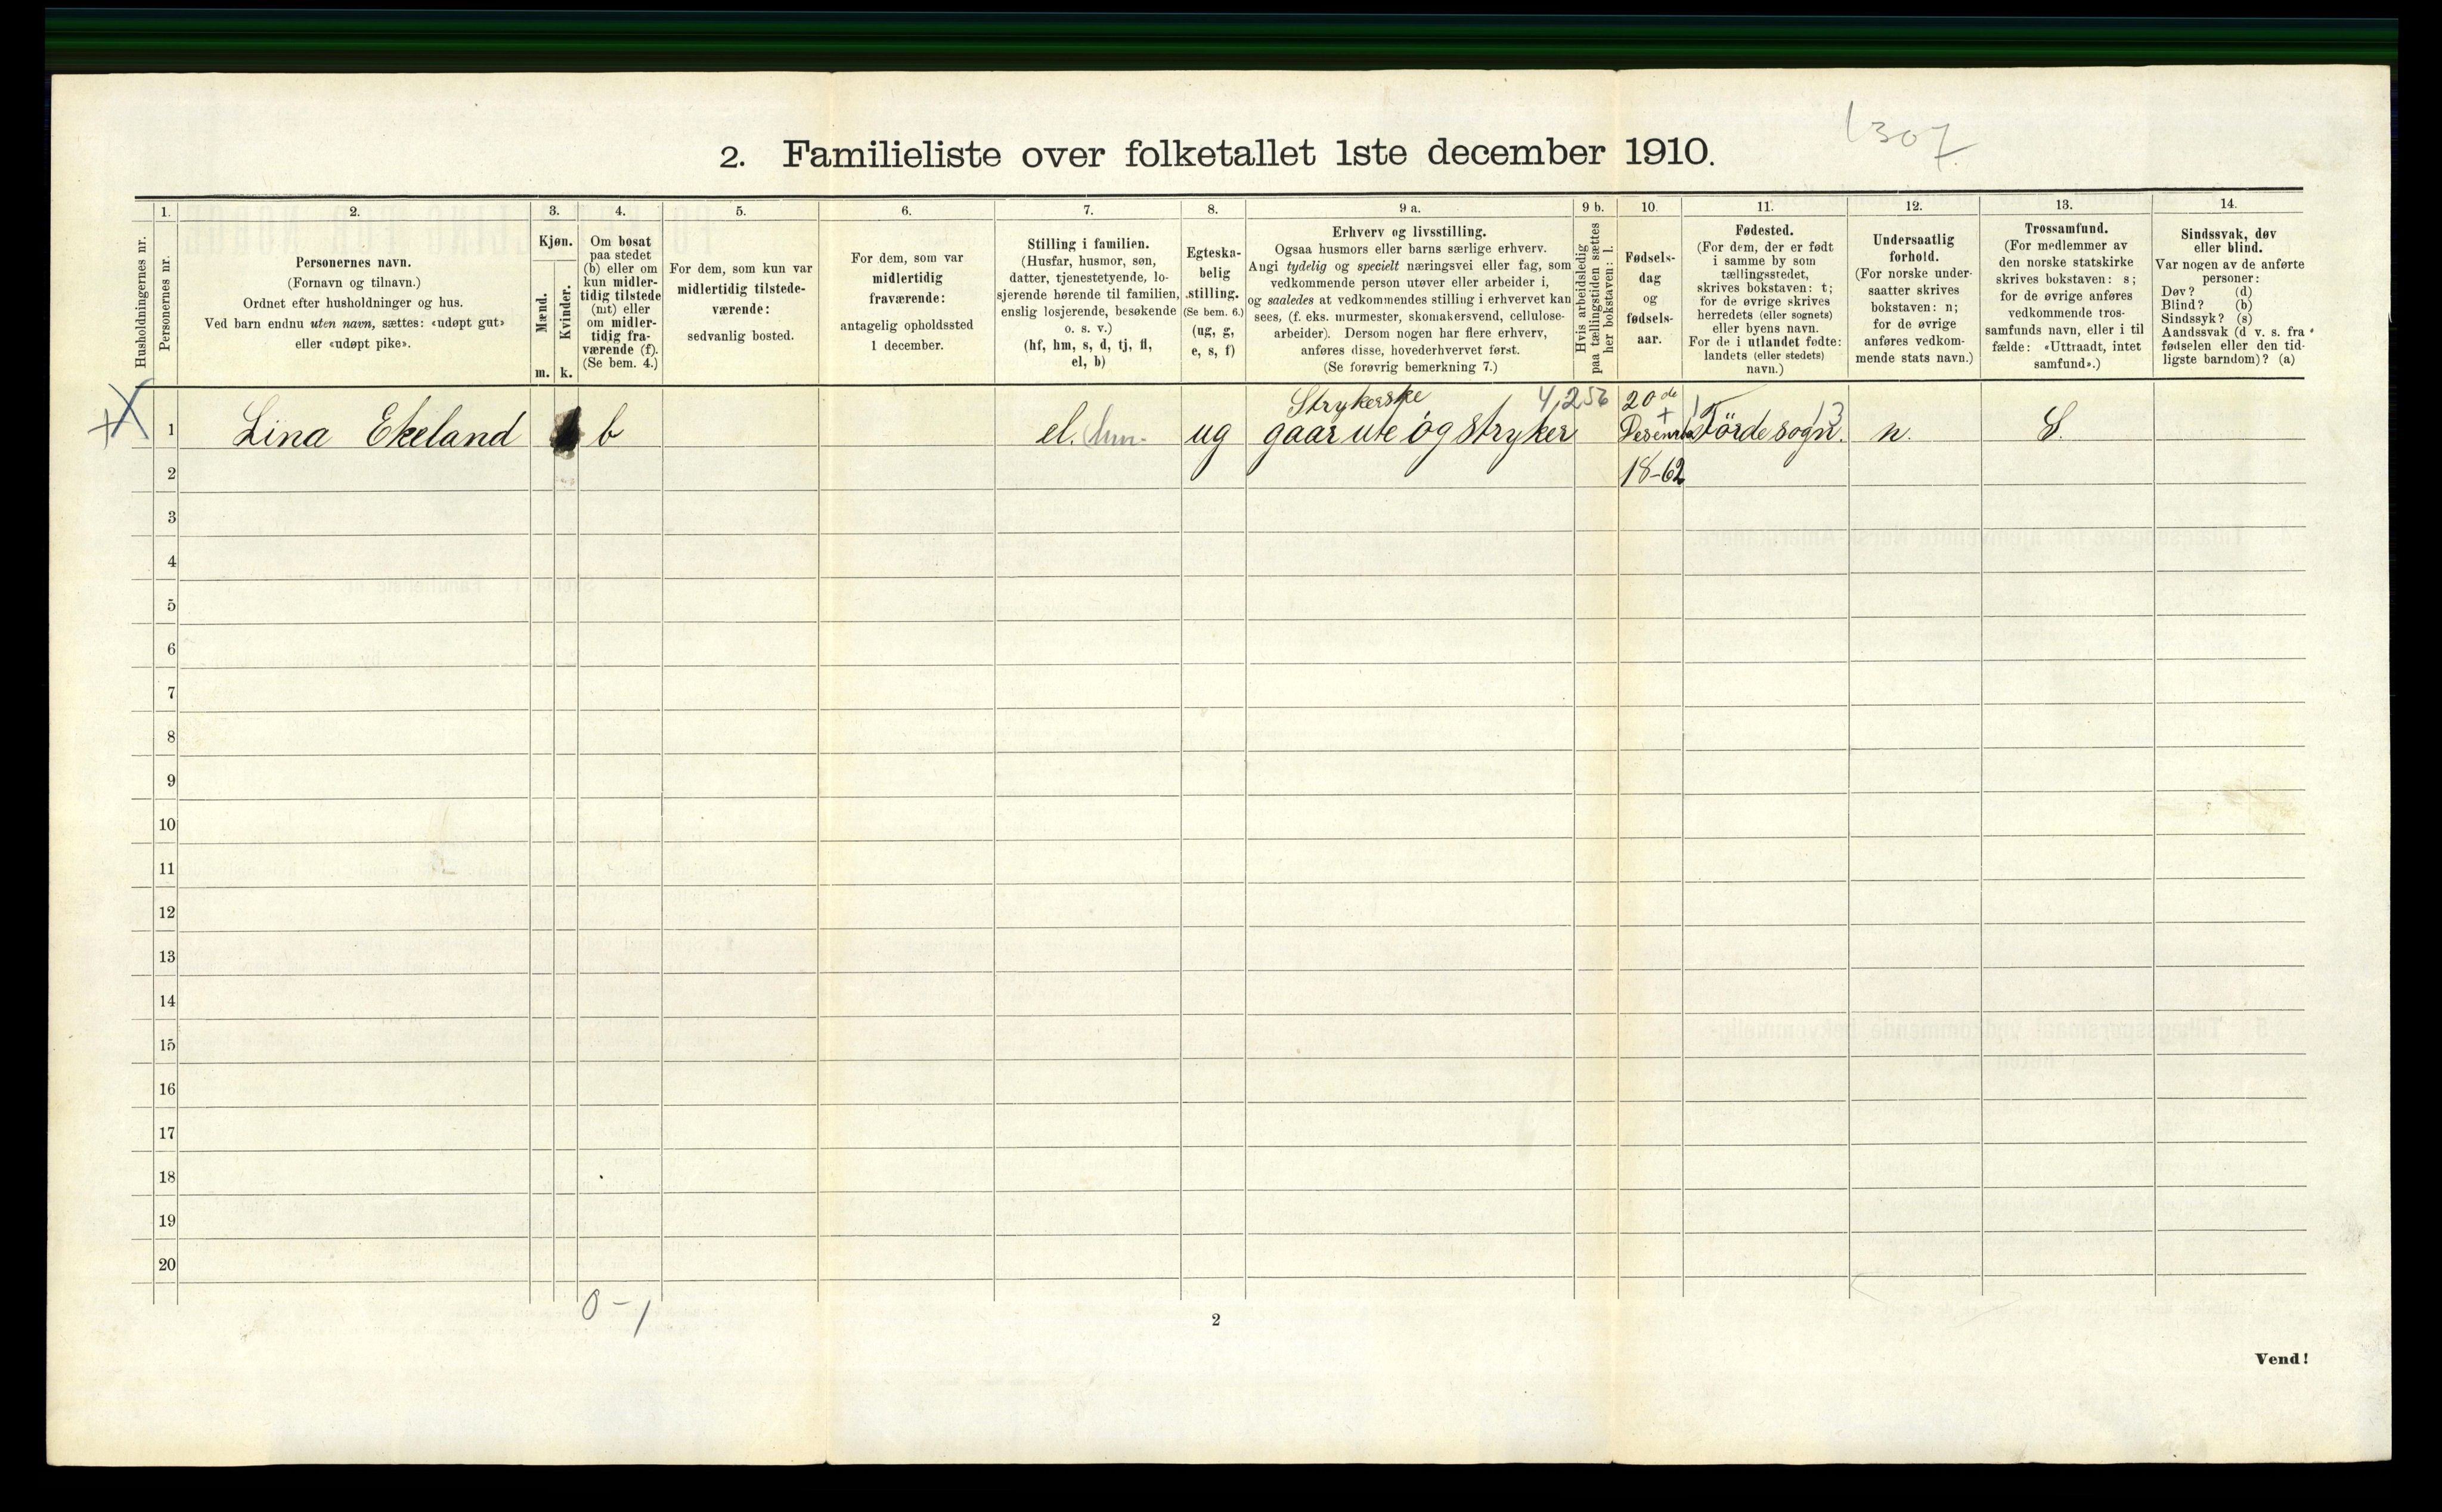 1307.
2. Familieliste over folketallet 1ste december 1910.
Husholdningernes nr.
1.
Personernes nr.
2.
Personernes navn.
(Fornavn og tilnavn.)
Ordnet efter husholdninger og hus.
Ved barn endnu uten navn, sættes: «udøpt gut»
eller «udøpt pike».
3.
Kjøn.
Mænd.
m.
Kvinder.
k.
4.
Om bosat
paa stedet
(b) eller om
kun midler-
tidig tilstede
(mt) eller
om midler-
tidig fra-
værende (f).
(Se bem. 4.)
5.
For dem, som kun var
midlertidig tilstede-
værende:
sedvanlig bosted.
6.
For dem, som var
midlertidig
fraværende:
antagelig opholdssted
1 december.
7.
Stilling i familien.
(Husfar, husmor, søn,
datter, tjenestetyende, lo-
sjerende hørende til familien,
enslig losjerende, besøkende
o. s. v.)
(hf, hm, s, d, tj, fl,
el, b)
8.
Egteska-
belig
stilling.
(Se bem. 6.)
(ug, g,
e, s, f)
9 a.
Erhverv og livsstilling.
Ogsaa husmors eller barns særlige erhverv.
Angi tydelig og specielt næringsvei eller fag, som
vedkommende person utøver eller arbeider i,
og saaledes at vedkommendes stilling i erhvervet kan
sees, (f. eks. murmester, skomakersvend, cellulose-
arbeider). Dersom nogen har flere erhverv,
anføres disse, hovederhvervet først.
(Se forøvrig bemerkning 7.)
9 b.
Hvis arbeidsledig
paa tællingstiden sættes
her bokstaven: l.
10.
Fødsels-
dag
og
fødsels-
aar.
11.
Fødested.
(For dem, der er født
i samme by som
tællingsstedet,
skrives bokstaven: t;
for de øvrige skrives
herredets (eller sognets)
eller byens navn.
For de i utlandet fødte:
landets (eller stedets)
navn.)
12.
Undersaatlig
forhold.
(For norske under-
saatter skrives
bokstaven: n;
for de øvrige
anføres vedkom-
mende stats navn.)
13.
Trossamfund.
(For medlemmer av
den norske statskirke
skrives bokstaven: s;
for de øvrige anføres
vedkommende tros-
samfunds navn, eller i til
fælde: «Uttraadt, intet
samfund».)
14.
Sindssvak, døv
eller blind.
Var nogen av de anførte
personer:
Døv? (d)
Blind? (b)
Sindssyk? (s)
Aandssvak (d. v. s. fra
fødselen eller den tid-
ligste barndom)? (a)
Strykerske 4,256 20de
X 1 Lina Ekeland b el. ug gaar ute og stryker Førde sogn. 13 n. S.
18-62
2
3
4
5
6
7
8
9
10
11
12
13
14
15
16
17
18
19
20
0-1
2
Vend!